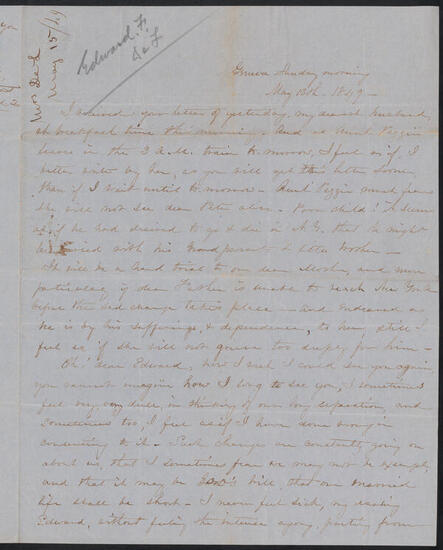 Edward. F.
De L
Mrs De L
May 15/49
Geneva Sunday morning
May 13th. 1849 -
I received your letter of yesterday, my dearest husband,
at breakfast time this morning. And as Aunt Lizzie
leaves in the 3 A.M. train to-morrow, I feel as if I
better write by her, as you will get this letter sooner
than if I wait until to-morrow - Aunt Lizzie much fears
she will not see dear Peter alive. Poor child! It seems
as if he had desired to go & die in N.Y. that he might
be buried with his Grandparents & little brother -
It will be a hard trial to our dear Mother, and more
particularly if dear Father is unable to reach New York
before the sad change takes place - and Endeared as
he is by his sufferings, & dependence, to her, still I
feel as if she will not grieve too deeply for him -
Oh! dear Edward, how I wish I could see you again
you cannot imagine how I long to see you, I sometimes
feel very, very dull, in thinking of our long separation, and
sometimes too, I feel as if I have done wrong in
consenting to it - Such changes are constantly going on
about us, that I sometimes fear we may not be exempt,
and that it may be God's will, that our married
life shall be short - I never feel sick, my darling
Edward, without feeling the intense agony, partly from